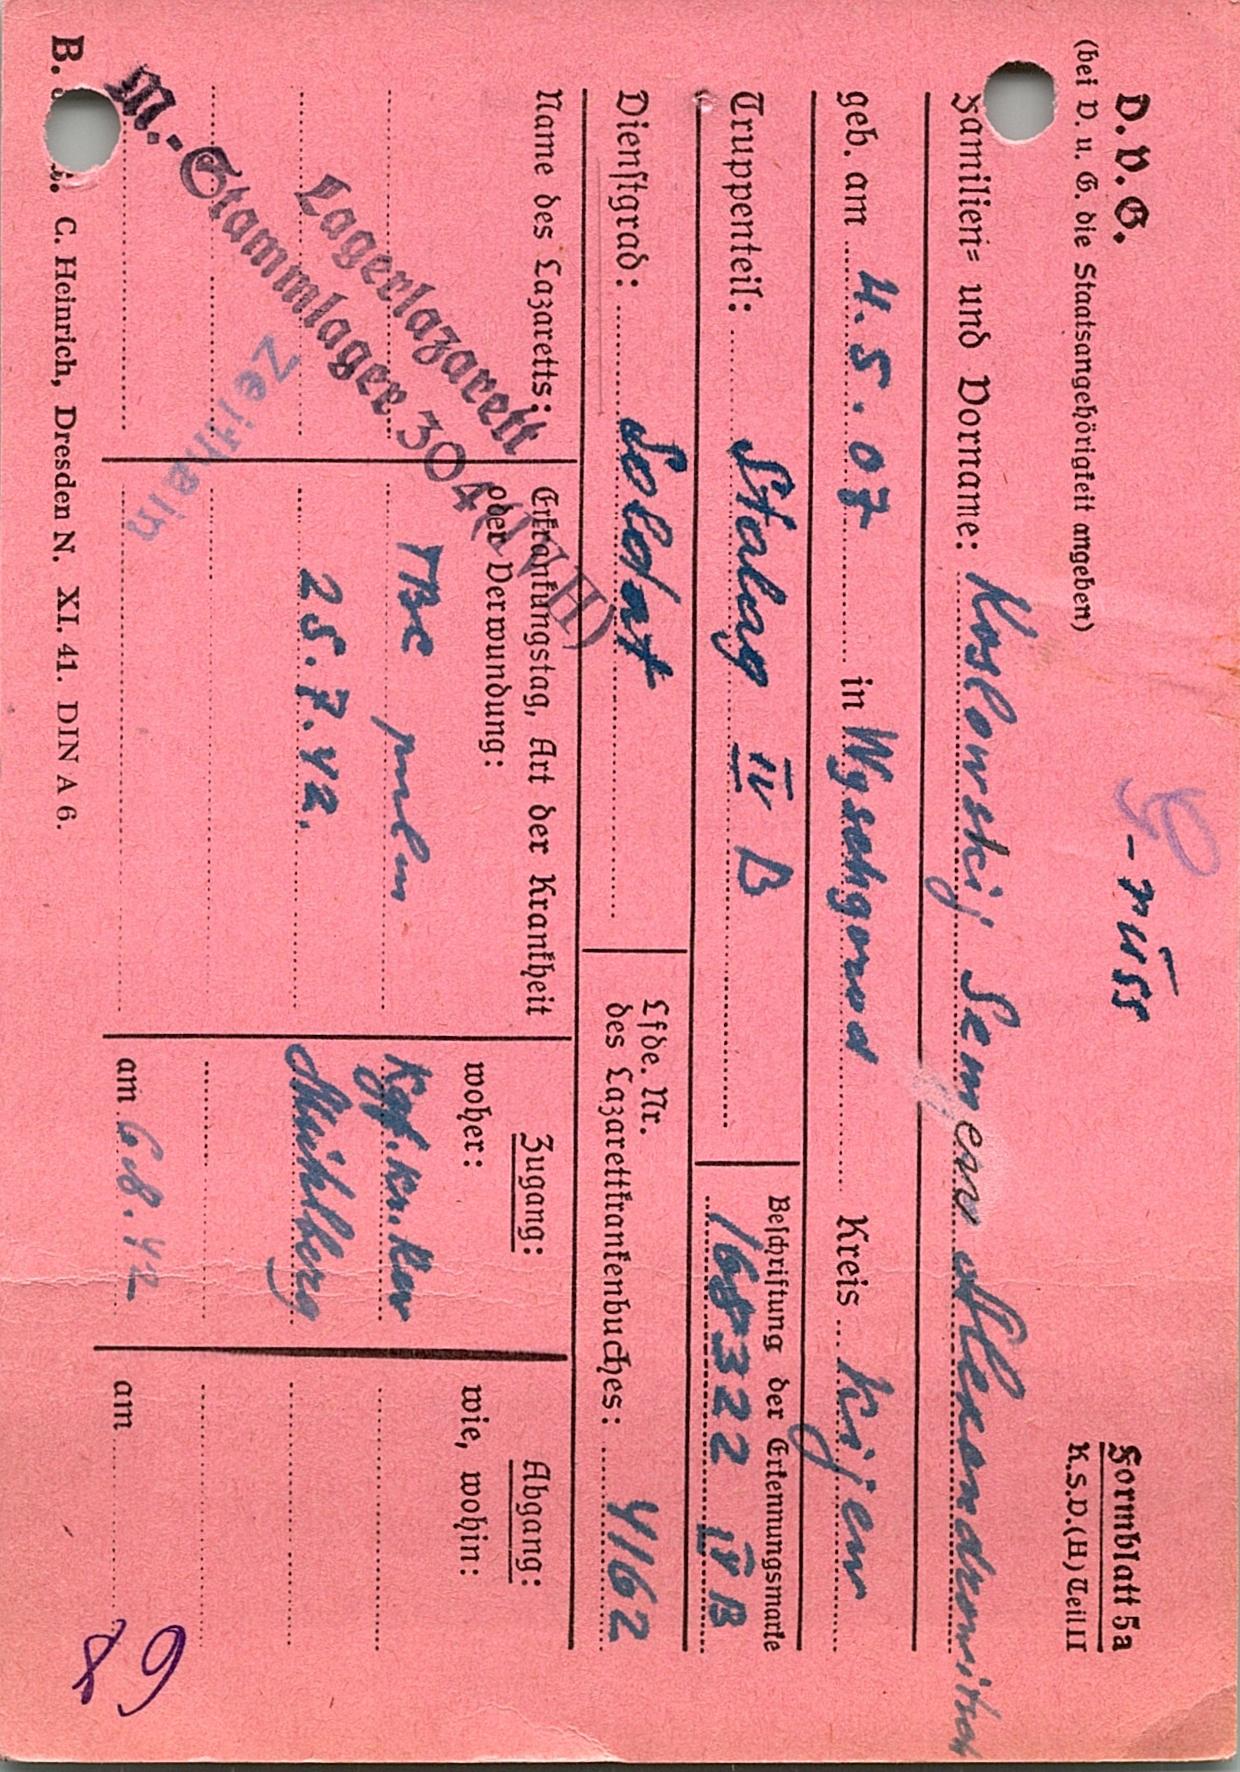 D. V. G. - russ
Formblatt 5a
(bei V. u. G. die Staatsangehörigkeit angeben)
K.S.V.(H) Teil II
Familien= und Vorname: Koslowskij Semjen Alexandrowitsch
geb. am 4.5.07 in Wyschgorod Kreis Kijew
Truppenteil: Stalag IV B
Beschriftung der Erkennungsmarke
168322 IV B
Dienstgrad: Soldat
Lfde. Nr.
des Lazarettkrankenbuches: 4162
Name des Lazaretts:
Erkrankungstag, Art der Krankheit
oder Verwundung:
Zugang:
woher:
Abgang:
wie, wohin:
Lagerlazarett
M.-Stammlager 304 (IV H)
Zeithain
Tbc pulm
25.7.42.
Kgf. Kr.
Mühlberg
am 6.8.42
am
68
C. Heinrich, Dresden N. XI. 41. DIN A 6.